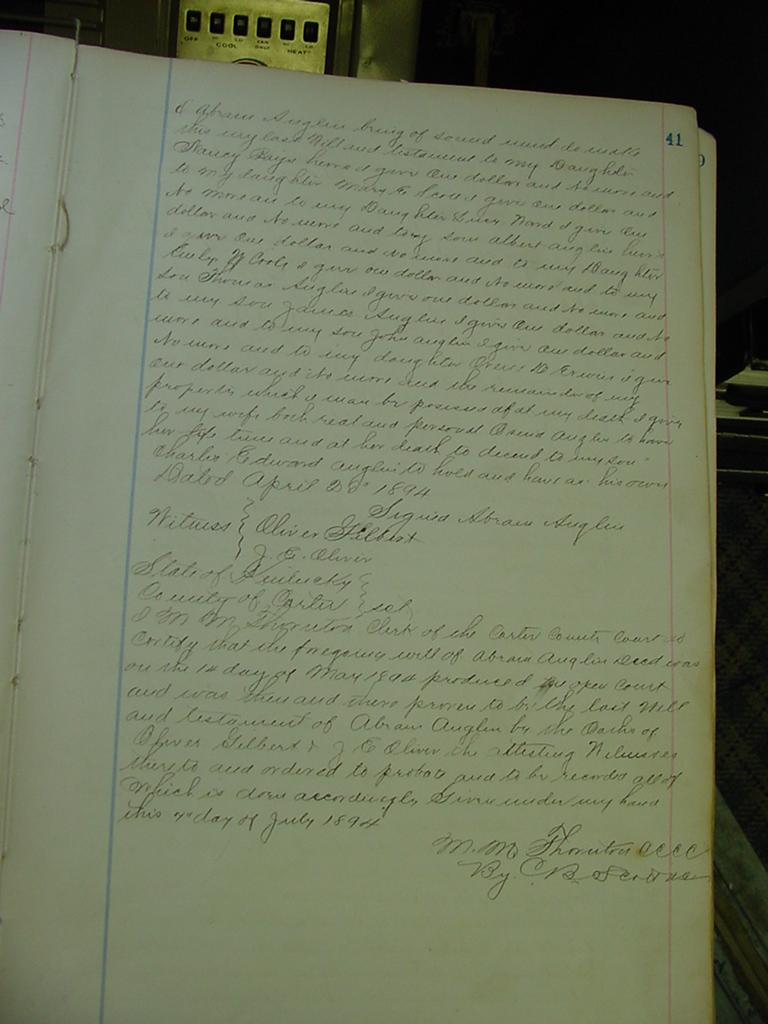 OFF HI LO FAN ONLY HI LO
COOL HEAT
41
I Abram Anglin being of sound mind do make
this my last Will and testament to my Daughter
Nancy heirs I give One dollar and No more and
to my daughter Mary E. Scott I give One dollar and
No more and to my Daughter Lucy Ward I give One
dollar and No more and to my son albert anglin heirs
I give One dollar and No more and to my Daughter
Emily Cook I give one dollar and No more and to my
son Thomas Anglin I give one dollar and No more and
to my son James Anglin I give One dollar and No
more and to my son John anglin I give One dollar and
No more and to my daughter D Erwin I give
One dollar and No more and the remainder of my
property what I may be posessed of at my death I give
to my wife both real and personal Anglin to have
her life time and at her death to decend to my son
Charlie Edward anglin to hold and have as his own
Dated April 1894
Signed Abram Anglin
Witness Oliver Gilbert
J. E. Oliver
State of Kentucky
County of Carter sct
I M. M. Thornton Clerk of the Carter County Court do
Certify that the foregoing will of Abram Anglin Decd was
on the 14 day of May 1894 produced in open Court
and was then and there proven to be the last Will
and testament of Abram Anglin by the Oaths of
Oliver Gilbert & J E Oliver the attesting Witnesses
thereto and ordered to probate and to be recorded all of
Which is done accordingly Given under my hand
this day of July 1894
M. M. Thornton CCCC
By C B Scott DC